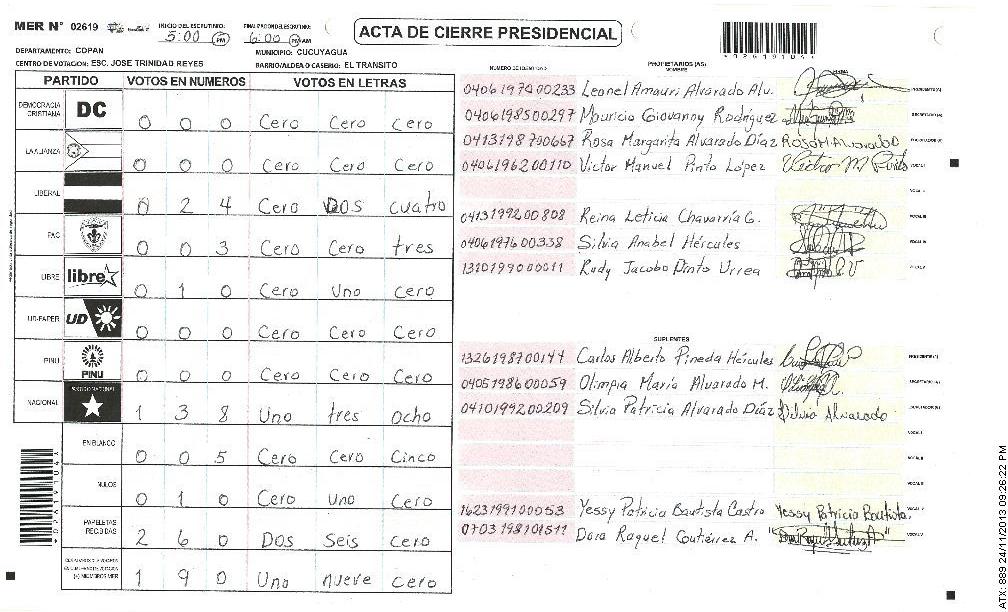 MER N° 02619
INICIO DEL ESCRUTINIO: 5:00 PM
FINALIZACION DEL ESCRUTINIO: 6:00 PM AM
ACTA DE CIERRE PRESIDENCIAL
DEPARTAMENTO: COPAN
MUNICIPIO: CUCUYAGUA
CENTRO DE VOTACION: ESC. JOSE TRINIDAD REYES
BARRIO/ALDEA O CASERIO: EL TRANSITO
PARTIDO VOTOS EN NUMEROS VOTOS EN LETRAS
DEMOCRACIA CRISTIANA DC 0 0 0 Cero Cero Cero
LA ALIANZA 0 0 0 Cero Cero Cero
LIBERAL 0 2 4 Cero Dos cuatro
PAC 0 0 3 Cero Cero tres
LIBRE libre 0 1 0 Cero Uno cero
UD-FAPER UD 0 0 0 Cero Cero Cero
PINU PINU 0 0 0 Cero Cero Cero
NACIONAL 1 3 8 Uno tres ocho
EN BLANCO 0 0 5 Cero Cero Cinco
NULOS 0 1 0 Cero uno Cero
PAPELETAS RECIBIDAS 2 6 0 Dos Seis cero
(+) MIEMBROS MER 1 9 0 Uno nueve cero
PROPIETARIOS (AS)
NOMBRE
0406197400233 Leonel Amauri Alvarado Alv. PRESIDENTE(A)
0406198500297 Mauricio Giovanny Rodríguez SECRETARIO(A)
0413198700667 Rosa Margarita Alvarado Díaz Rosa M Alvarado
0406196200110 Victor Manuel Pinto López Victor M Pinto VOCAL I
0413199200808 Reina Leticia Chavarría G.
0406197600338 Silvia Anabel Hércules
1310199000011 Rudy Jacobo Pinto Urrea
SUPLENTES
1326198700144 Carlos Alberto Pineda Hércules PRESIDENTE(A)
0405198600059 Olimpia María Alvarado M. SECRETARIO(A)
0410199200209 Silvia Patricia Alvarado Díaz Silvia Alvarado
1623199100053 Yessy Patricia Bautista Castro Yessy Patricia Bautista
0703198101511 Dora Raquel Gutiérrez A.
ATX: 889 24/11/2013 09:26:22 PM